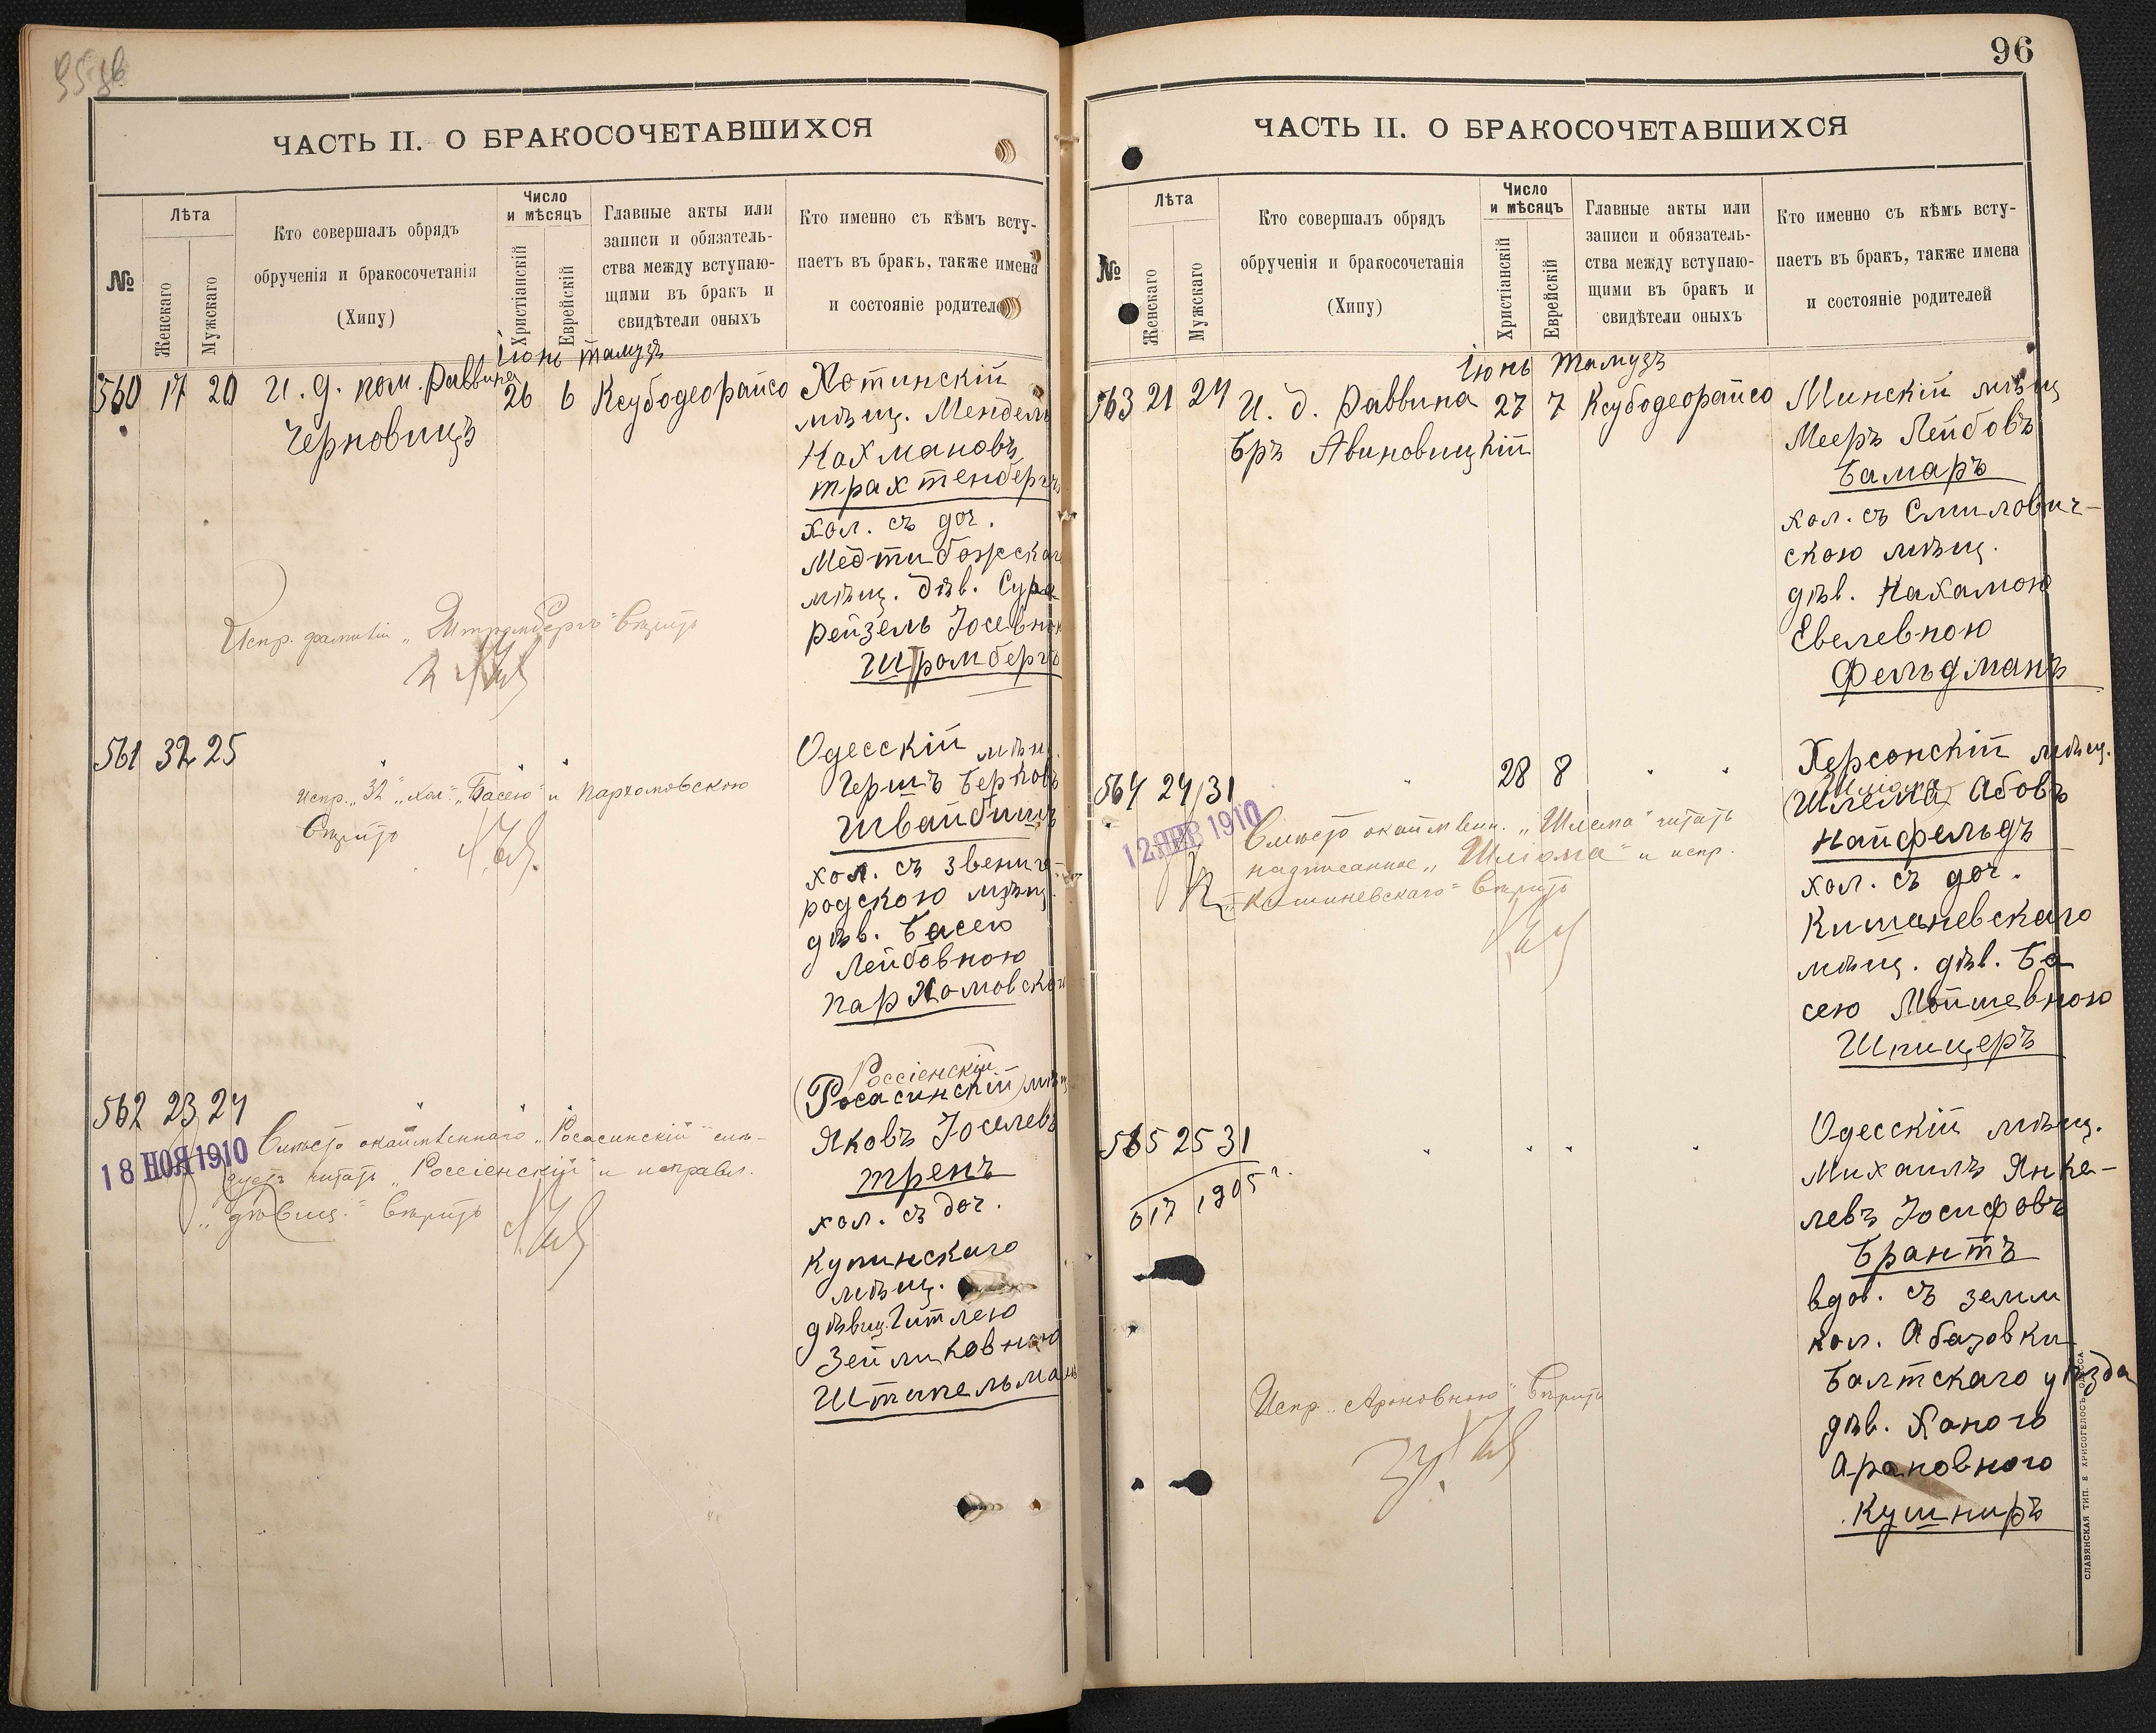 ЧАСТЬ II. О БРАКОСОЧЕТАВШИХСЯ
№
Лѣта
Женскаго
Мужскаго
Кто совершалъ обрядъ
обрученія и бракосочетанія
(Хипу)
Число
и мѣсяцъ
Христіанскій
Еврейскій
Главные акты или
записи и обязатель-
ства между вступаю-
щими въ бракъ и
свидѣтели оныхъ
Кто именно съ кѣмъ всту-
паетъ въ бракъ, также имена
и состояніе родителей
Іюнь Тамузъ
560 17 20 И. д. пом. Раввина 26 6 Ксубодеорайсо
Черновицъ
Хотинскій
мѣщ. Мендель
Нахмановъ
Трахтенбергъ
хол. съ доч.
Меджибожскаго
мѣщ. дѣв. Сура
Рейзель Іосевною
Штромбергъ
Испр. фамилія „Штромбергъ" вѣрить
561 32 25 " " "
Испр. „32" „хол." „Басею" и Пархомовскою
вѣрить
Одесскій мѣщ.
Гершъ Берковъ
Швайбишъ
хол. съ звениго-
родскою мѣщ.
дѣв. Басею
Лейбовною
Пархомовскою
562 23 24 " " "
18 НОЯ 1910
Вмѣсто окаймленнаго „Росасинскій" слѣ-
дуетъ читать „Россіенскій" и исправл.
„дѣвиц." вѣрить
Россіенскій
(Росасинскій) мѣщ.
Яковъ Іоселевъ
Тренъ
хол. съ доч.
Купинскаго
мѣщ.
дѣвиц. Гитлею
Зейликовною
Штипельманъ
96
ЧАСТЬ II. О БРАКОСОЧЕТАВШИХСЯ
№
Лѣта
Женскаго
Мужскаго
Кто совершалъ обрядъ
обрученія и бракосочетанія
(Хипу)
Число
и мѣсяцъ
Христіанскій
Еврейскій
Главные акты или
записи и обязатель-
ства между вступаю-
щими въ бракъ и
свидѣтели оныхъ
Кто именно съ кѣмъ всту-
паетъ въ бракъ, также имена
и состояніе родителей
Іюнь Тамузъ
563 21 24 И. д. Раввина 27 7 Ксубодеорайсо
Бръ Авиновицкій
Минскій мѣщ
Мееръ Лейбовъ
Бамаръ
хол. съ Смилович-
скою мѣщ.
дѣв. Нахамою
Евелевною
Фельдманъ
564 24 31 " 28 8 " "
12 ЯНВ 1910
Вмѣсто окаймлен. „Шлема" читать
надписанное „Шліома" и испр.
„Кишиневскаго" вѣрить
Херсонскій мѣщ.
Шліома
(Шлема) Абовъ
Найфельдъ
хол. съ доч.
Кишиневскаго
мѣщ. дѣв. Ба
сею Мошевною
Шпицеръ
565 25 31 " " " "
617 1905 г.
Испр. „Ароновною" вѣрить
Одесскій мѣщ.
Михаилъ Янке-
левъ Іосифовъ
Брантъ
вдов. съземл
кол. Абазовки
Балтскаго уѣзда
дѣв. Ханою
Ароновною
Кушниръ
СЛАВЯНСКАЯ ТИП. Е. ХРИСОГЕЛОСЪ, ОДЕССА.